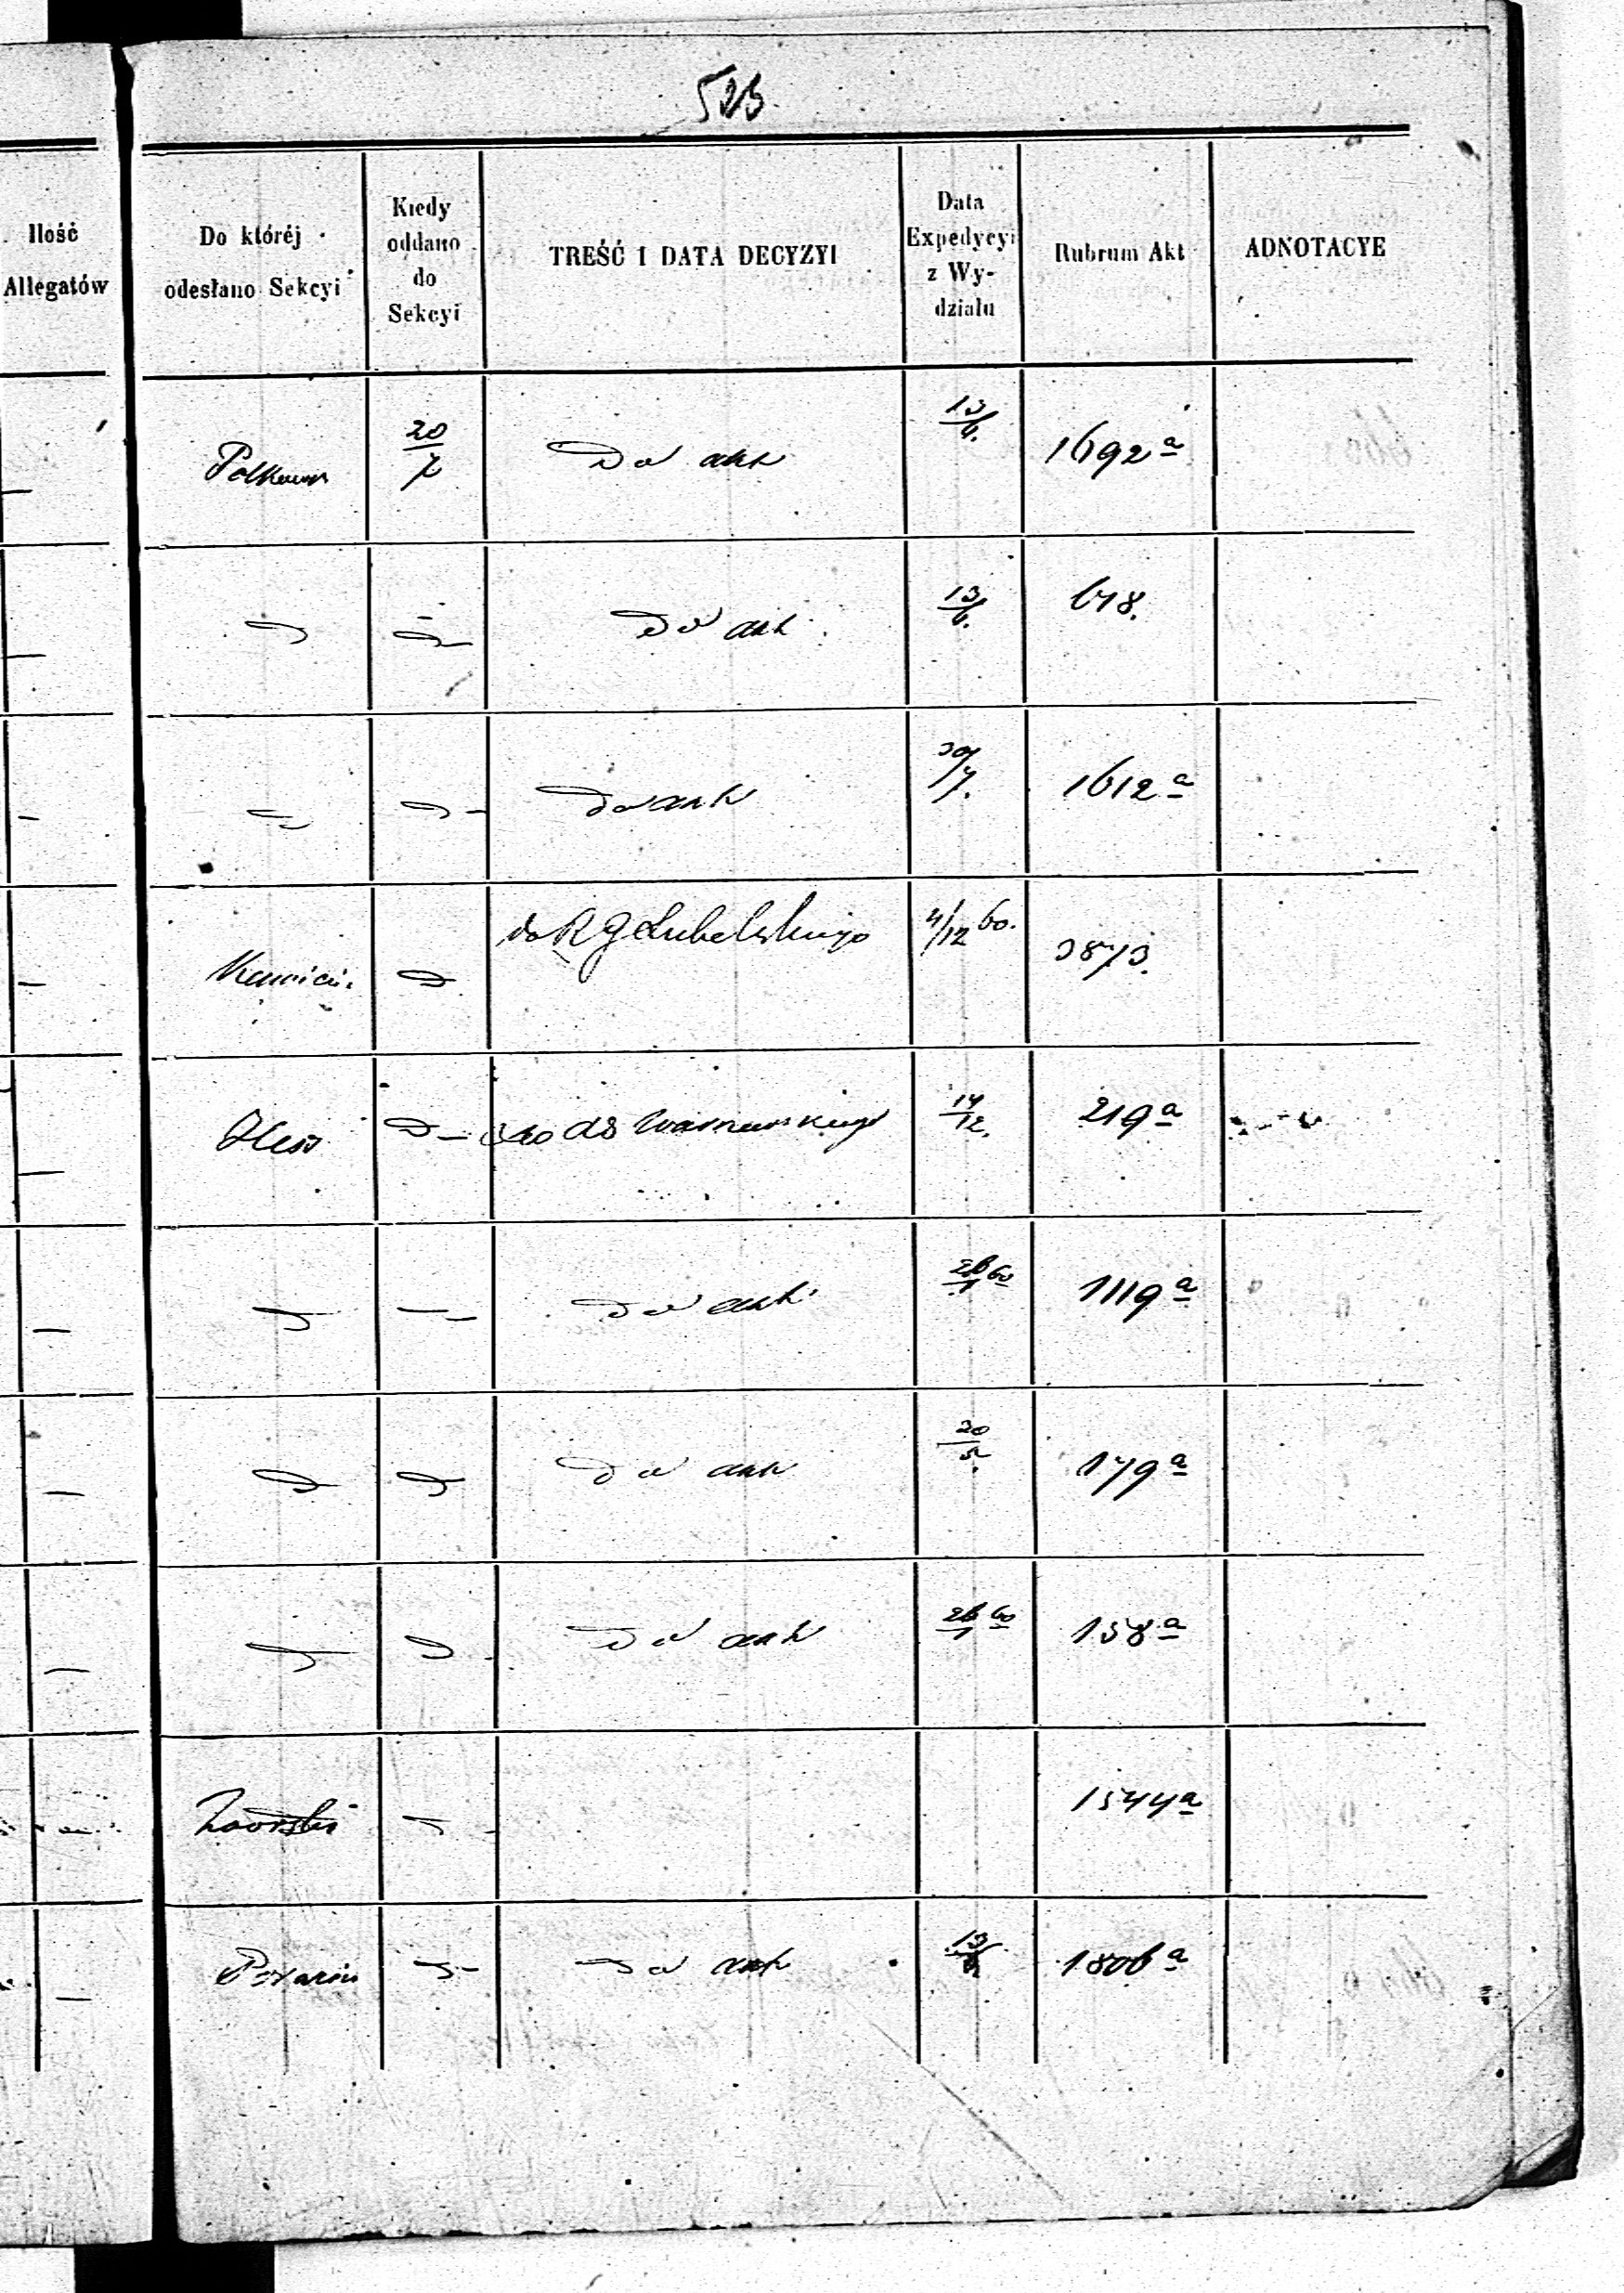 523
Ilość
Allegatów
Do któréj
odesłano Sekcyi
Kiedy
oddano
do
Sekcyi
TREŚĆ I DATA DECYZYI
Data
Expedycyi
z Wy-
działu
Rubrum Akt
ADNOTACYE
20/7 Do akt 13/6. 1692 a
Do akt 13/6. 678.
Do akt 30/7. 1612 a
do R G Lubelskiego 4/12 60. 3873.
Hess do Warszawskiego 14/12. 219 a
Do akt 26/1 60 1119 a
Do akt 20/5 179 a
Do akt 26/1 60 158 a
1544 a
Do akt 13/6. 1806 a